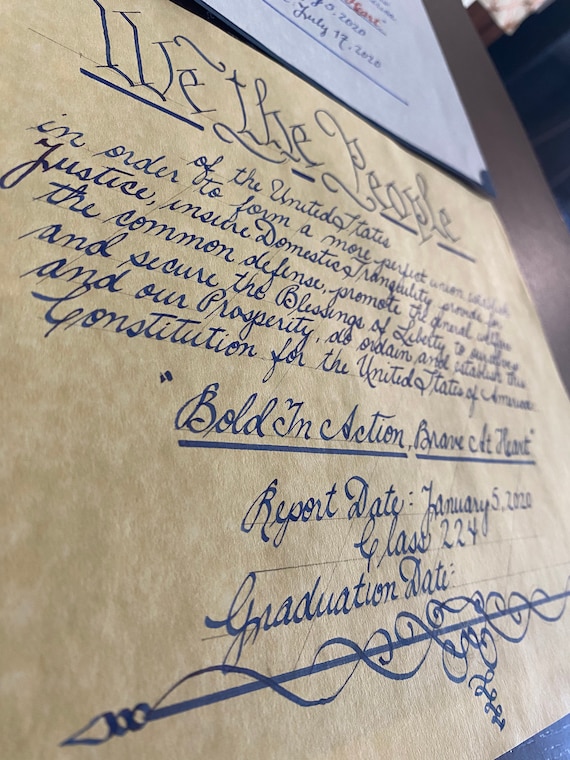 Heart"
5, 2020
July 17, 2020
We the People
of the United States
in order to form a more perfect union establish
Justice, insure Domestic Tranquility, provide for
the common defense, promote the general welfare
and secure the Blessings of Liberty to ourselves
and our Prosperity, do ordain and establish this
Constitution for the United States of America
"Bold In Action, Brave At Heart"
Report Date: January 5, 2020
Class 224
Graduation Date: